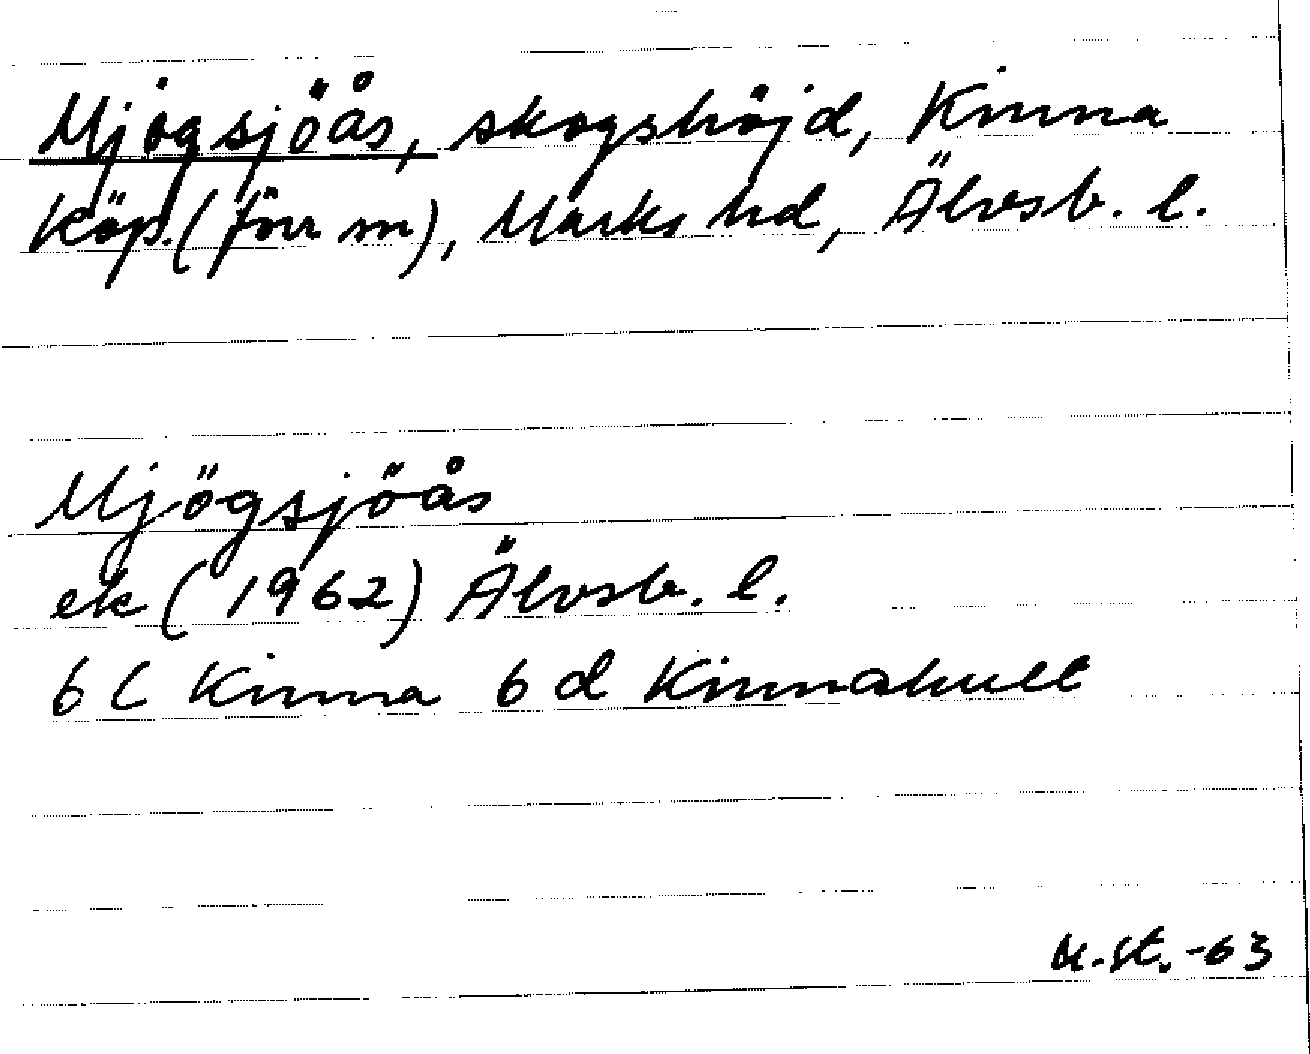 Mjögsjöås, skogshöjd, Kinna
Köp. (förr sn), Marks hd, Älvsb. l.
Mjögsjöås
ek (1962) Älvsb. l.
6 C Kinna 6 d Kinnahult
u.st. -63